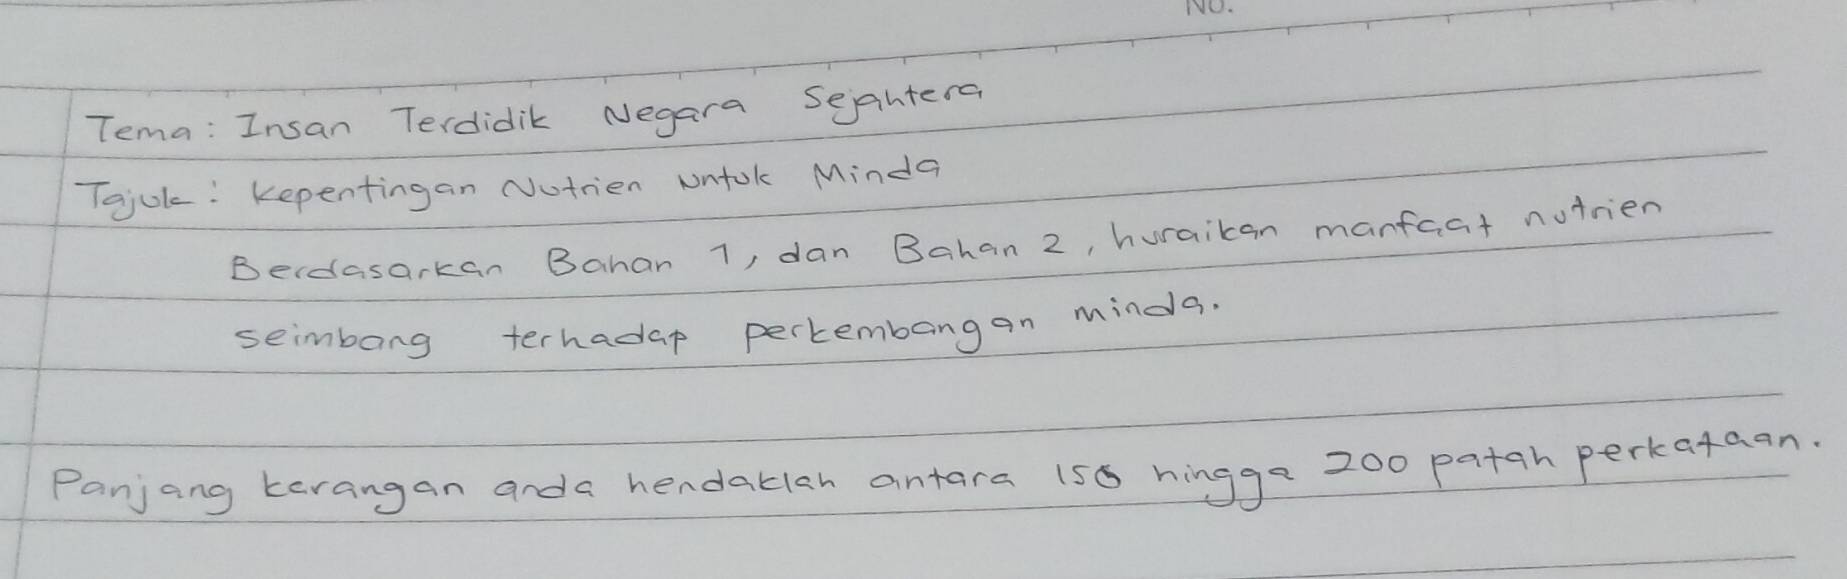 No.
Tema: Insan Terdidik Negara Sejahtera
Tajuk: Kepentingan Nutrien untuk Minda
Berdasarkan Bahan 1, dan Bahan 2, huraikan manfaat nutrien
seimbang terhadap perkembangan minda.
Panjang karangan anda hendaklah antara 150 hingga 200 patah perkataan.